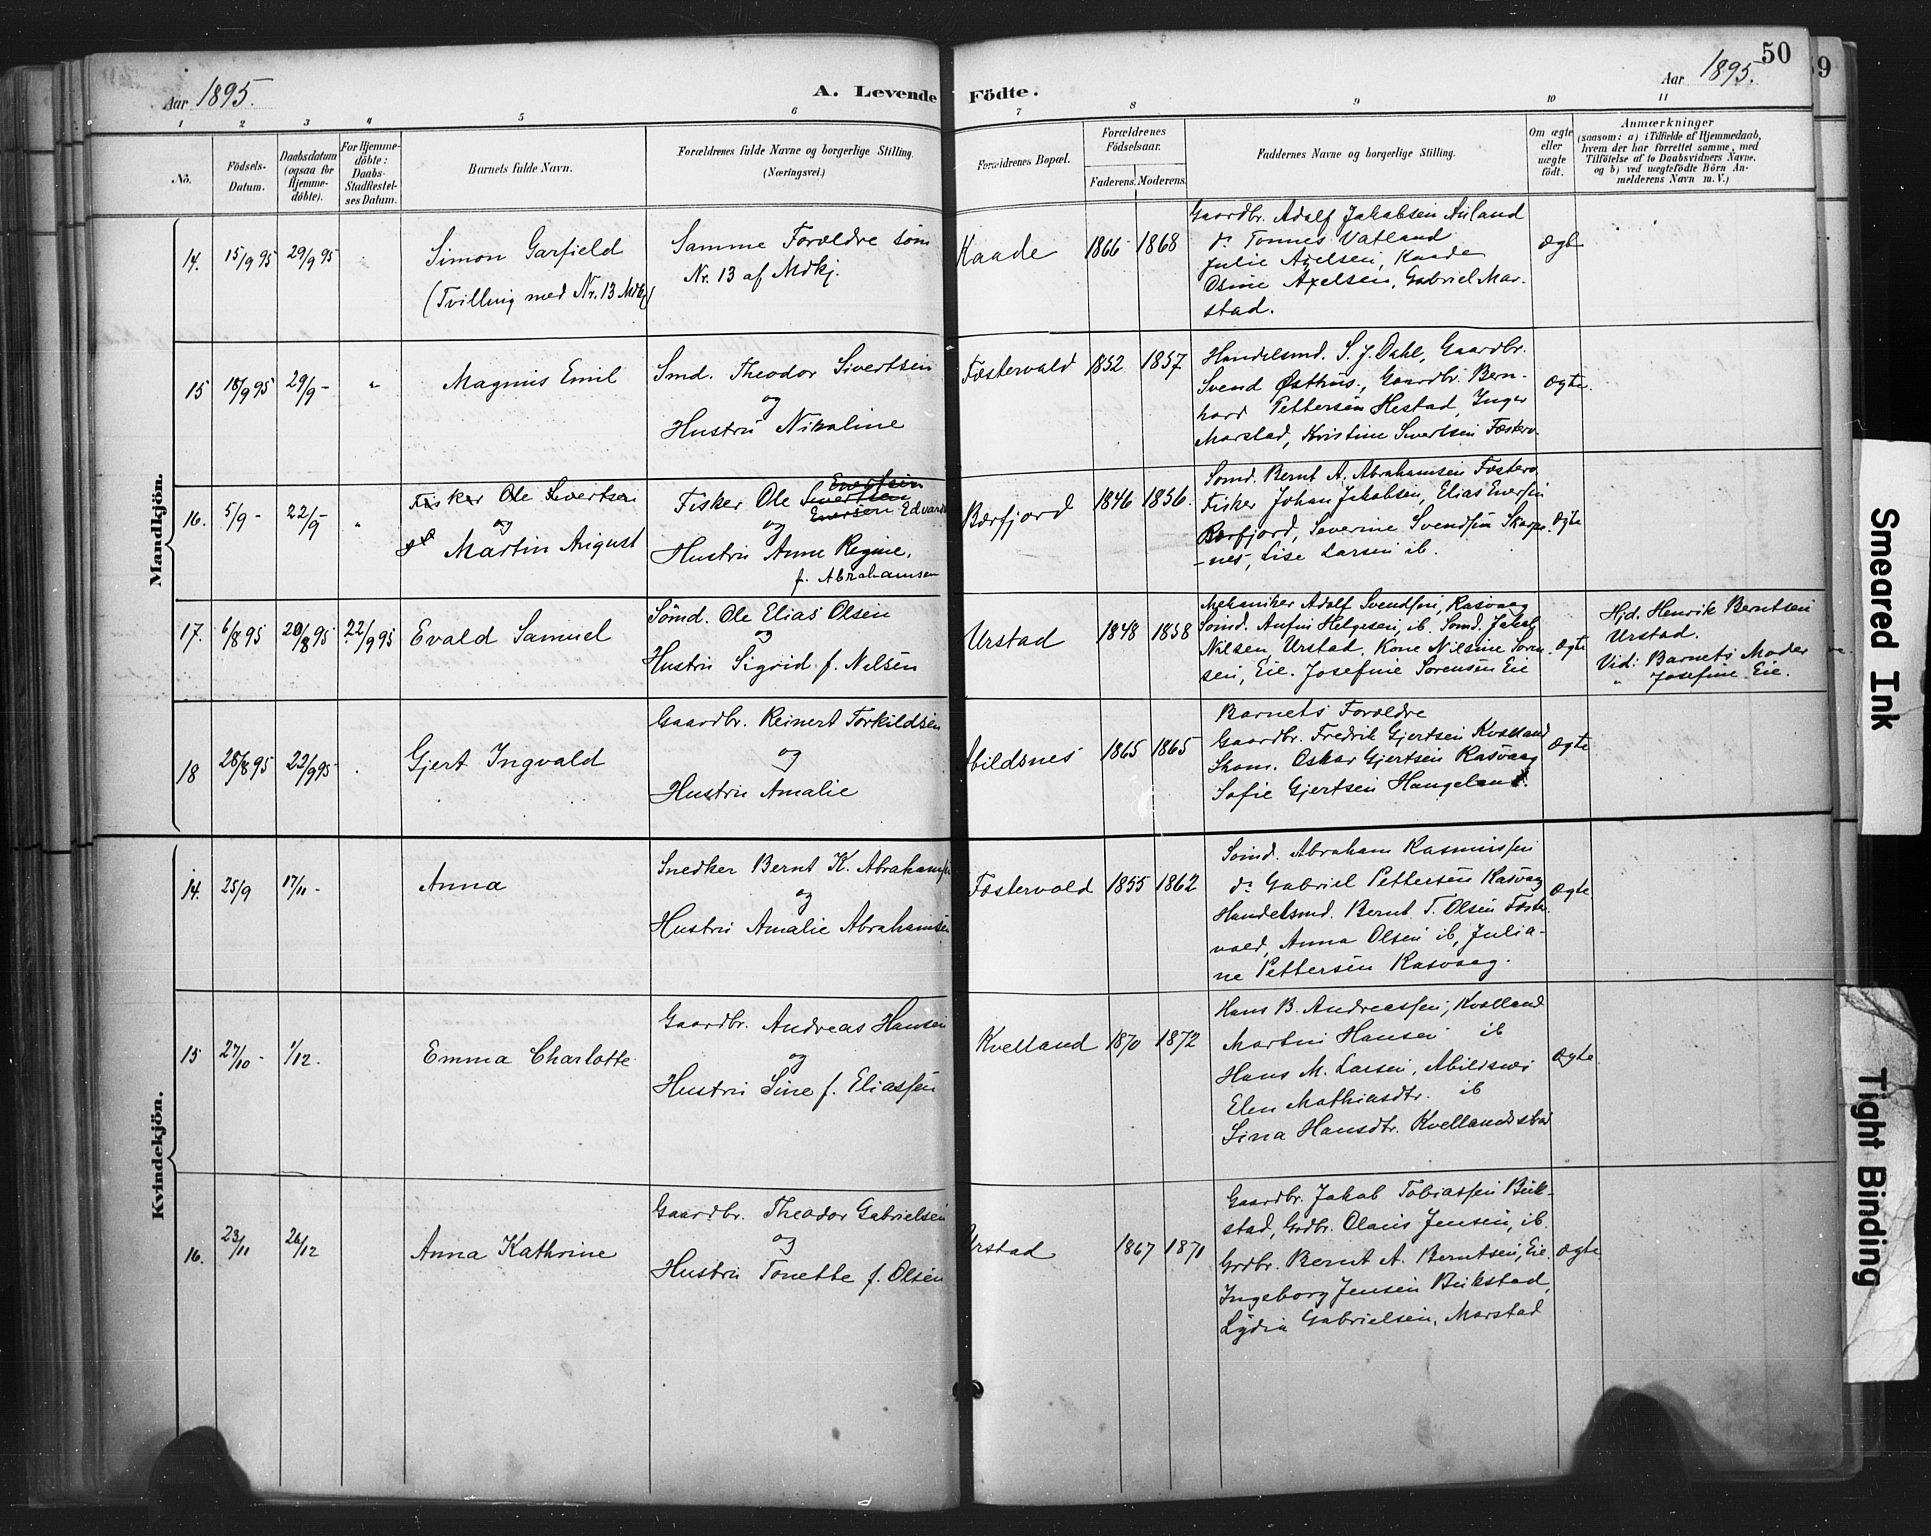 50
9
Aar 1895.
A. Levende Födte.
Aar 1895.
1 2 3 4 5 6 7 8 9 10 11
No.
Födsels-Datum.
Daabsdatum (ogsaa for Hjemme-döbte).
For Hjemme-döbte: Daabs-Stadfæstel-ses Datum.
Barnets fulde Navn.
Forældrenes fulde Navne og borgerlige Stilling.
(Næringsvei.)
Forældrenes Bopæl.
Forældrenes Födselsaar.
Faderens. Moderens.
Faddernes Navne og borgerlige Stilling.
Om ægte eller uægte födt.
Anmærkninger
(saasom: a) i Tilfælde af Hjemmedaab,
hvem der har forrettet samme, med
Tilföielse af to Daabsvidners Navne,
og b) ved uægtefödte Börn An-
melderens Navn m. V.)
Mandkjön.
14. 15/9 95 29/9 95
Simon Garfield
(Tvilling med Nr. 13 Mdkj)
Samme Forældre som
Nr. 13 af Mdkj.
Kaade 1866 1868
Gaardbr. Adolf Jakobsen Auland
do Tonnes Vatland
Julie Axelsen, Kaade
Osine Axelsen, Gabriel Mar-
stad.
ægte
15 18/9 95 29/9 - "
Magnus Emil
Smd. Theodor Sivertsen
og
Hustru Nikoline
Fosterwold 1852 1857
Handelsmd. S. J. Dahl, Gaardbr.
Svend Østhus, Gaardbr. Bern-
hard Pettersen Hestad, Inger
Marstad, Kristine Sivertsen Fosterv.
ægte.
16. 5/9 - 22/9 - "
Fisker Ole Sivertsen
og
Martin August
Fisker Ole Sivertsen Enertsen
og Enersen Edvards
Hustru Anne Regine,
f. Abrahamsen
Bærfjord 1846 1856.
Somd. Bernt A. Abrahamsen Fosterv.
Fisker Johan Jakobsen, Elias Enersen
Bærfjord, Severine Svendsen Skarps-
-nes, Lise Larsen ib.
ægte
17. 6/8 95 20/8 95 22/9 95
Evald Samuel
Sömd. Ole Elias Olsen
og
Hustru Sigrid f. Nilsen
Urstad 1848 1858
Mekaniker Adolf Svendsen, Rasvaag
Somd. Anfin Helgesen, ib. Somd. Jakob
Nilsen, Urstad, Kone Nilsine Soren-
sen, Eie. Josefine Sorensen Eie
ægte
Hjd. Henrik Berntsen
Urstad.
Vid: Barnets Moder
" Josefine Eie.
18 28/8 95 22/9 95
Gjert Ingvald
Gaardbr. Reinert Torkildsen
og
Hustru Amalie
Abildsnes 1865 1865
Barnets Forældre
Gaardbr. Fredrik Gjertsen Kvelland
Skom. Oskar Gjertsen Rasvaag
Sofie Gjertsen Haugeland.
ægte
Kvindekjön.
14. 25/9 17/11 -
Anna
Snedker Bernt K. Abrahamsen
og
Hustru Amalie Abrahamsen
Fosterwold 1855 1862
Somd. Abraham Rasmussen
do Gabriel Pettersen Rasvaag
Handelsmd. Bernt T. Olsen Foster-
vold, Anna Olsen ib, Julia-
ne Pettersen Rasvaag.
ægte
15 27/10 - 1/12.
Emma Charlotte
Gaardbr. Andreas Hansen
og
Hustru Sine f. Eliassen
Kvelland 1870 1872
Hans B. Andreassen, Kvelland
Martin Hansen ib
Hans M. Larsen, Abildsnes
Elen Mathiasdtr. ib
Sina Hansdtr. Kvellandstrd
ægte
16. 23/11 26/12
Anna Kathrine
Gaardbr. Theodor Gabrielsen
og
Hustru Tonette f. Olsen
Urstad 1867 1871
Gaardbr. Jakob Tobiassen Buk-
stad, Grdbr. Olaus Jensen, ib.
Grdbr. Bernt A. Berntsen, Eie
Ingeborg Jensen Bukstad,
Lydia Gabrielsen, Marstad
ægte
Smeared Ink
Tight Binding